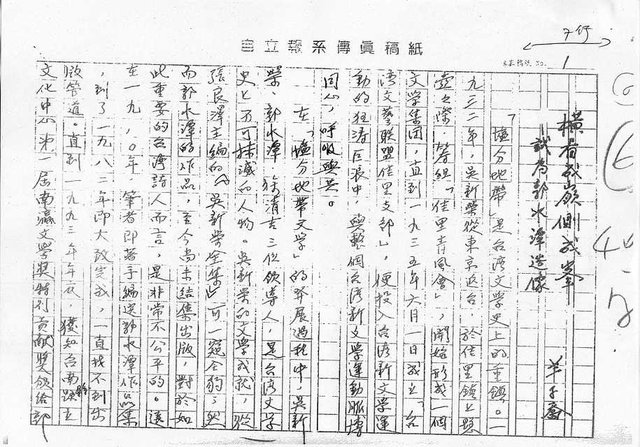 自立報系傳真稿紙
7行
1
橫看成嶺側成峯
試為郭水潭造像
羊子喬
「塩分地帶」是台灣文學史上的重鎮。一
九三二年,吳新榮從東京返台,於佳里鎮上懸
壺之際,籌組「佳里青風會」,開始形成一個
文學集團,直到一九三五年六月一日成立「台
灣文藝聯盟佳里支部」,便投入台灣新文學運
動的狂濤巨浪中,與整個台灣新文學運動脈搏
同心,呼吸與共。
在「塩分地帶文學」的發展過程中,吳新
榮、郭水潭、徐清吉三位領導人,是台灣文學
史上不可抹滅的人物。吳新榮的文學成就,從
張良澤主編的《吳新榮全集》可一窺全豹;然
而郭水潭的作品,至今尚未結集出版,對於如
此重要的台灣詩人而言,是非常不公平的。遠
在一九八〇年,筆者即著手編選郭水潭作品集
,到了一九八三年即大致完成,一直找不到出
版管道。直到一九九三年年底,獲知台南縣立
文化中心第一屆南瀛文學獎特刊貢獻獎頒給郭